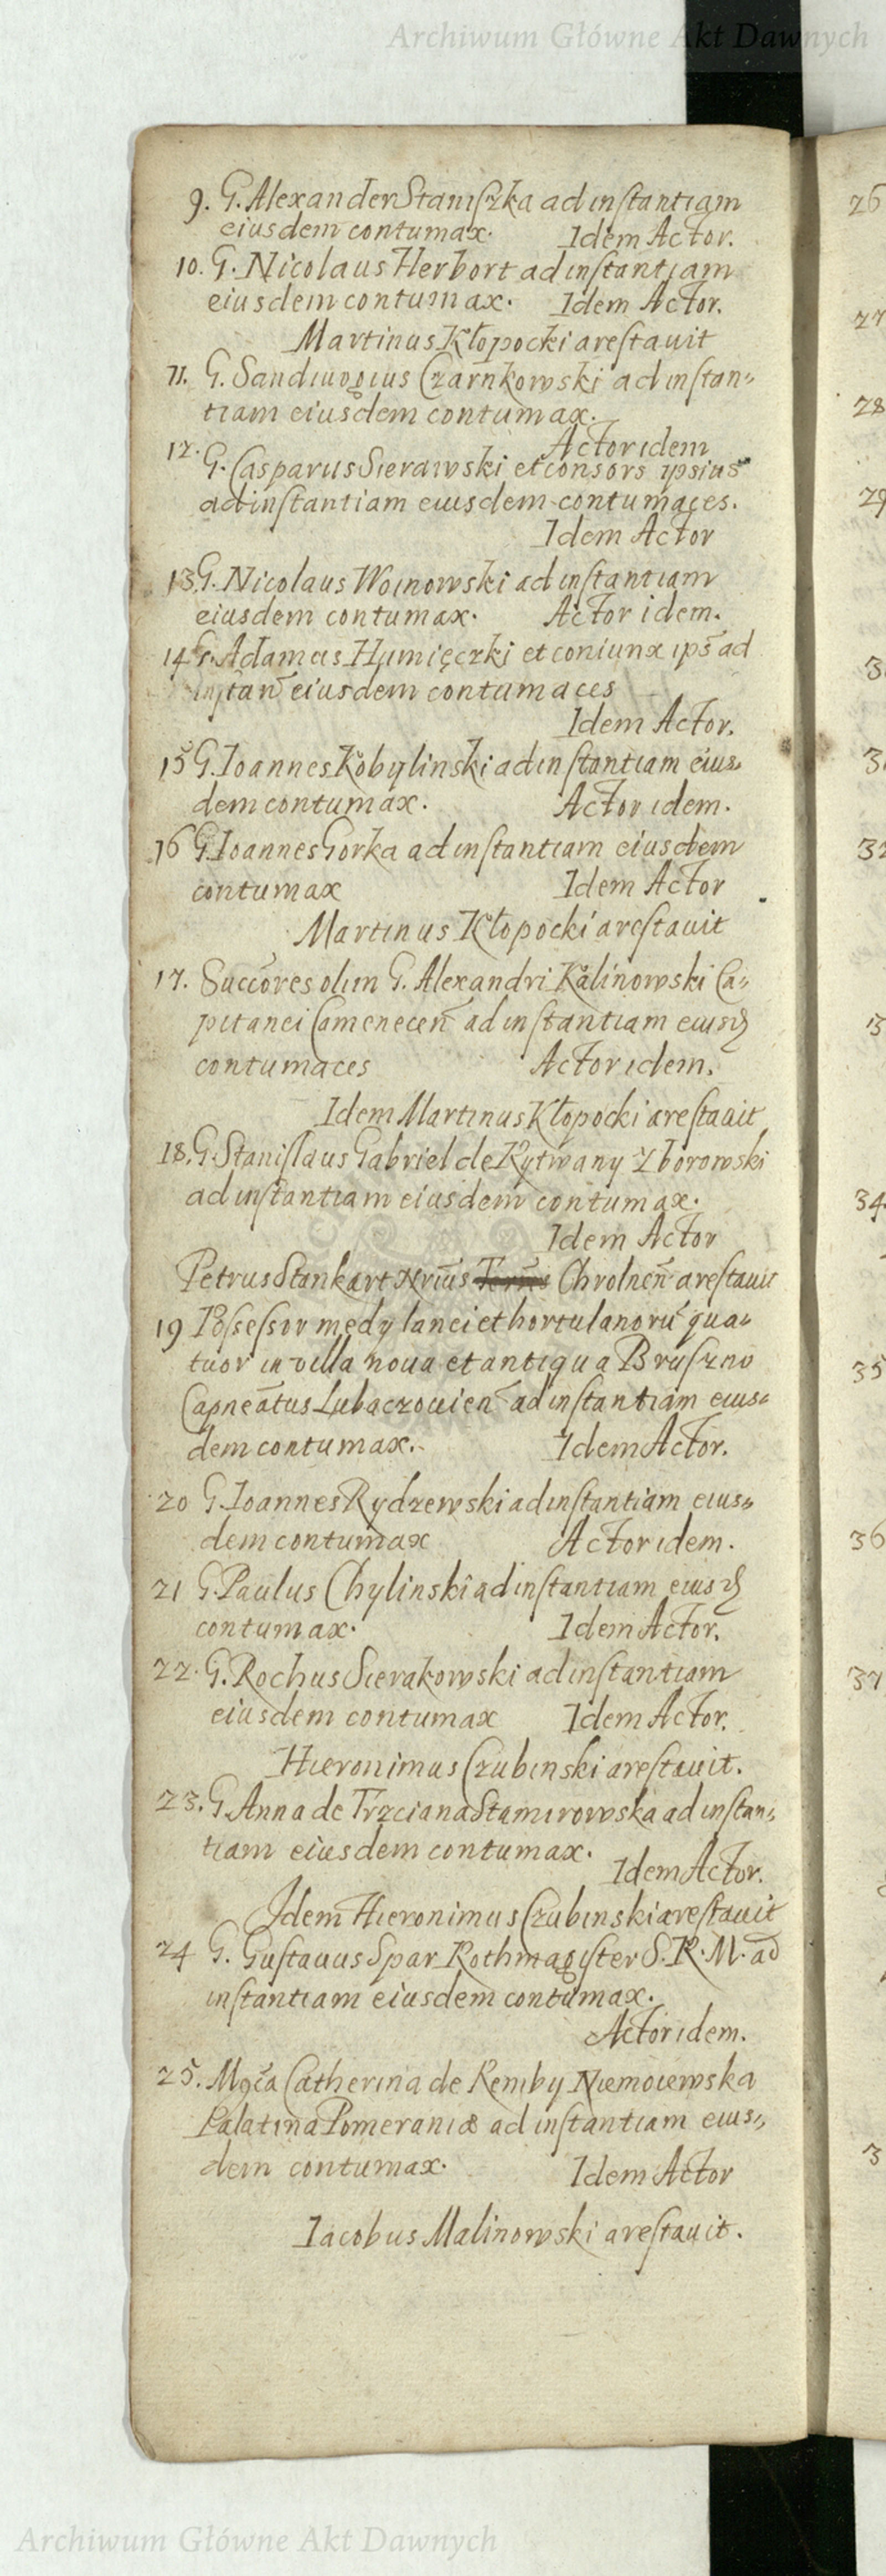 Archiwum Główne Akt Dawnych
9. G. Alexander Staniszka ad instantiam
eiusdem contumax. Idem Actor.
10. G. Nicolaus Herbort ad instantiam
eiusdem contumax. Idem Actor.
Martinus Kłopocki arestauit
11. G. Sandiuogius Czarnkowski ad instan-
tiam eiusdem contumax.
Actor idem
12. G. Casparus Sierawski et consors ypsius
ad instantiam eiusdem contumaces.
Idem Actor
13 G. Nicolaus Woinowski ad instantiam
eiusdem contumax. Actor idem.
14 G. Adamus Humięczki et coniunx ips ad
instan eiusdem contumaces
Idem Actor.
15 G. Ioannes Kobylinski ad instantiam eius-
dem contumax. Actor idem.
16 G. Ioannes Gorka ad instantiam eiusdem
contumax Idem Actor
Martinus Kłopocki arestauit
17. Succores olim G. Alexandri Kalinowski Ca-
pitanei Camenecen ad instantiam eiusd
contumaces Actor idem.
Idem Martinus Kłopocki arestauit
18. G. Stanislaus Gabriel de Rytwany Zborowski
ad instantiam eiusdem contumax.
Idem Actor
Petrus Stankart Nrius Chrolnen arestauit
19 Possessor medy lanei et hortulanoru qua-
tuor in villa noua et antiqua Bruszno
Capneatus Lubaczouien ad instantiam eius-
dem contumax. Idem Actor.
20 G. Ioannes Rydzewski ad instantiam eius-
dem contumax Actor idem.
21 G. Paulus Chylinski ad instantiam eiusd
contumax. Idem Actor.
22. G. Rochus Sierakowski ad instantiam
eiusdem contumax Idem Actor.
Hieronimus Czubinski arestauit.
23. G. Anna de Trzciana Stamirowska ad instan-
tiam eiusdem contumax.
Idem Actor.
Idem Hieronimus Czubinski arestauit
24 G. Gustauus Spar Rothmagister S. R. M. ad
instantiam eiusdem contumax.
Actor idem.
25. Mgca Catherina de Remby Niemoiewska
Palatina Pomeraniæ ad instantiam eius-
dem contumax. Idem Actor
Iacobus Malinowski arestauit.
26
27
28
29
34
35
36
37
Archiwum Główne Akt Dawnych